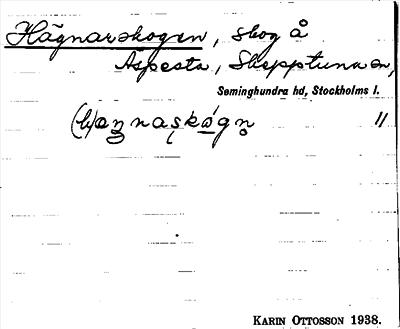 Hägnarskogen, skog å
Åspesta, Skepptuna sn,
Seminghundra hd, Stockholms l.
(h)aŋnaskógn̥ "
KARIN OTTOSSON 1938.